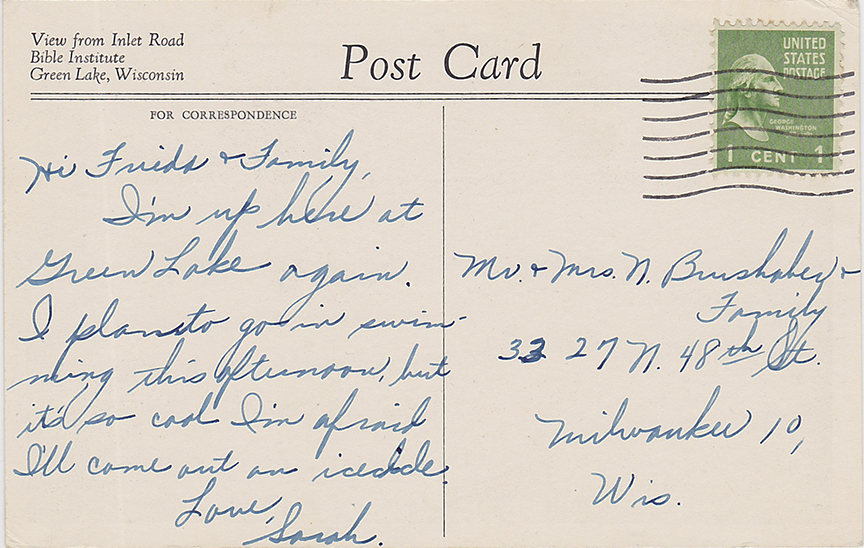 View from Inlet Road
Bible Institute
Green Lake, Wisconsin
Post Card
UNITED
STATES
POSTAGE
GEORGE
WASHINGTON
1 CENT 1
FOR CORRESPONDENCE
Hi Frieda & Family,
I'm up here at
Green Lake again.
I plan to go in swim-
ming this afternoon, but
it's so cool I'm afraid
I'll come out an icicle.
Love,
Sarah.
Mr. & Mrs. N. &
Family
3327 N. 48th St.
Milwaukee 10,
Wis.